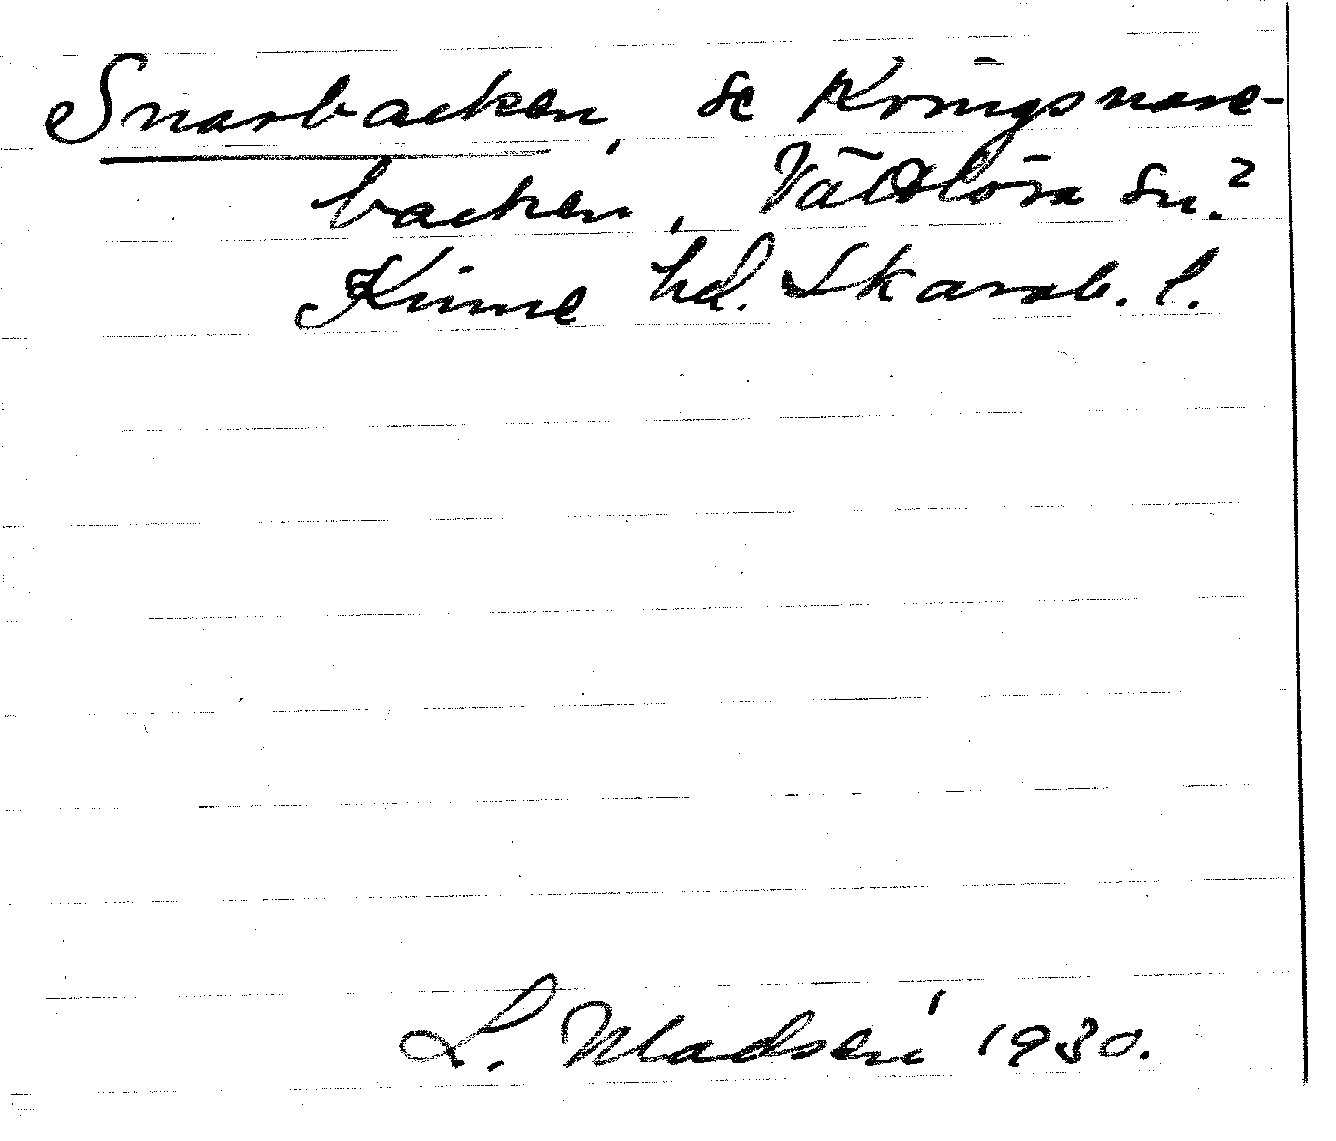 Snarbacken, se Kungsnare-
backen, Vättlösa sn.?
Kinne hd. Skarab. l.
L. Madsén 1930.